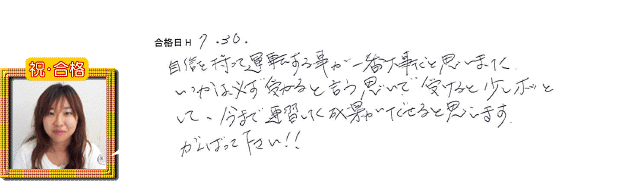 合格日 H 7.30.
祝・合格
自信を持って運転する事が一番大事だと思いました。
いつかは必ず受かると言う思いで受けると少しホッと
して、今まで練習した成果がだせると思います。
がんばって下さい!!